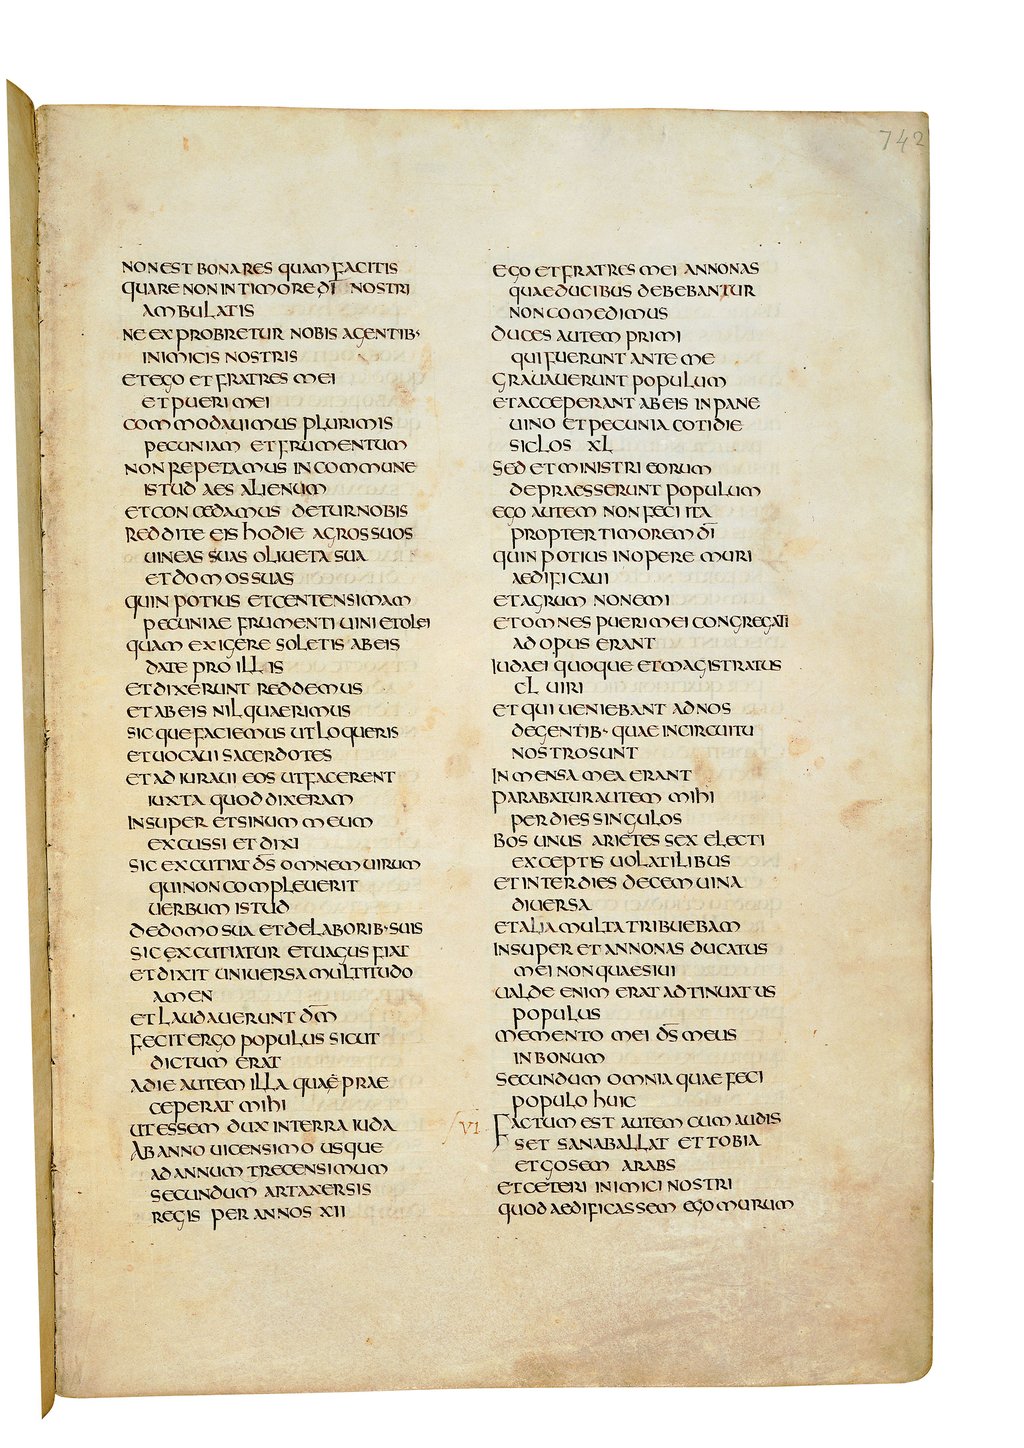 742
NON EST BONA RES QUAM FACITIS
QUARE NON IN TIMORE DĪ NOSTRI
AMBULATIS
NE EXPROBRETUR NOBIS AGENTIB·
INIMICIS NOSTRIS
ET EGO ET FRATRES MEI
ET PUERI MEI
COMMODAUIMUS PLURIMIS
PECUNIAM ET FRUMENTUM
NON REPETAMUS IN COMMUNE
ISTUD AES ALIENUM
ET CONCEDAMUS DETUR NOBIS
REDDITE EIS HODIE AGROS SUOS
UINEAS SUAS OLIUETA SUA
ET DOMOS SUAS
QUIN POTIUS ET CENTENSIMAM
PECUNIAE FRUMENTI UINI ET OLEI
QUAM EXIGERE SOLETIS AB EIS
DATE PRO ILLIS
ET DIXERUNT REDDEMUS
ET AB EIS NIL QUAERIMUS
SICQUE FACIEMUS UT LOQUERIS
ET UOCAUI SACERDOTES
ET ADIURAUI EOS UT FACERENT
IUXTA QUOD DIXERAM
INSUPER ET SINUM MEUM
EXCUSSI ET DIXI
SIC EXCUTIAT DS̄ OMNEM UIRUM
QUI NON COMPLEUERIT
UERBUM ISTUD
DE DOMO SUA ET DE LABORIB· SUIS
SIC EXCUTIATUR ET UACUS FIAT
ET DIXIT UNIUERSA MULTITUDO
AMEN
ET LAUDAUERUNT DM̄
FECIT ERGO POPULUS SICUT
DICTUM ERAT
A DIE AUTEM ILLA QUAE PRAE
CEPERAT MIHI
UT ESSEM DUX IN TERRA IUDA
AB ANNO UICENSIMO USQUE
AD ANNUM TRECENSIMUM
SECUNDUM ARTAXERSIS
REGIS PER ANNOS XII
EGO ET FRATRES MEI ANNONAS
QUAE DUCIBUS DEBEBANTUR
NON COMEDIMUS
DUCES AUTEM PRIMI
QUI FUERUNT ANTE ME
GRAUAUERUNT POPULUM
ET ACCEPERANT AB EIS IN PANE
UINO ET PECUNIA COTIDIE
SICLOS XL
SED ET MINISTRI EORUM
DEPRAESSERUNT POPULUM
EGO AUTEM NON FECI ITA
PROPTER TIMOREM DĪ
QUIN POTIUS IN OPERE MURI
AEDIFICAUI
ET AGRUM NON EMI
ET OMNES PUERI MEI CONGREGATI
AD OPUS ERANT
IUDAEI QUOQUE ET MAGISTRATUS
CL UIRI
ET QUI UENIEBANT AD NOS
DE GENTIB· QUAE IN CIRCUITU
NOSTRO SUNT
IN MENSA MEA ERANT
PARABATUR AUTEM MIHI
PER DIES SINGULOS
BOS UNUS ARIETES SEX ELECTI
EXCEPTIS UOLATILIBUS
ET INTER DIES DECEM UINA
DIUERSA
ET ALIA MULTA TRIBUEBAM
INSUPER ET ANNONAS DUCATUS
MEI NON QUAESIUI
UALDE ENIM ERAT ADTINUATUS
POPULUS
MEMENTO MEI DS̄ MEUS
IN BONUM
SECUNDUM OMNIA QUAE FECI
POPULO HUIC
VI FACTUM EST AUTEM CUM AUDIS
SET SANABALLAT ET TOBIA
ET GOSEM ARABS
ET CETERI INIMICI NOSTRI
QUOD AEDIFICASSEM EGO MURUM